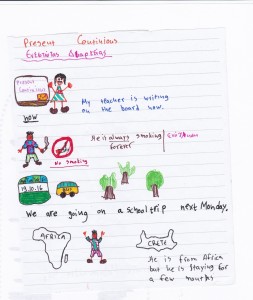 Present Continious
Ενεστώτας Διαρκείας
Present
Continious
My teacher is writing
on the board now.
now
He is always smoking
forever
No smoking
19.10.16
We are going on a school trip next Monday.
AFRICA
CRETE
He is from Africa
but he is staying for
a few months